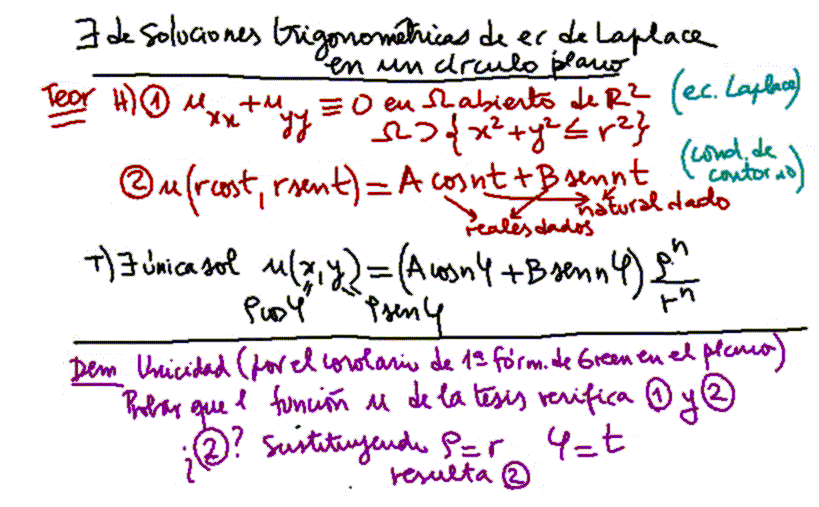 ∃ de soluciones trigonométricas de ec de Laplace
en un círculo plano
Teor H) ① u_xx + u_yy ≡ 0 en Ω abierto de R² (ec. Laplace)
Ω ⊃ { x² + y² ≤ r² }
② u(r cos t, r sen t) = A cos nt + B sen nt (cond. de contorno)
reales dados natural dado
T) ∃ única sol u(x, y) = (A cos nφ + B sen nφ) ρⁿ/rⁿ
ρ cos φ ρ sen φ
Dem Unicidad (por el corolario de 1ª fórm. de Green en el plano)
Probar que l función u de la tesis verifica ① y ②
¿②? Sustituyendo ρ = r φ = t
resulta ②